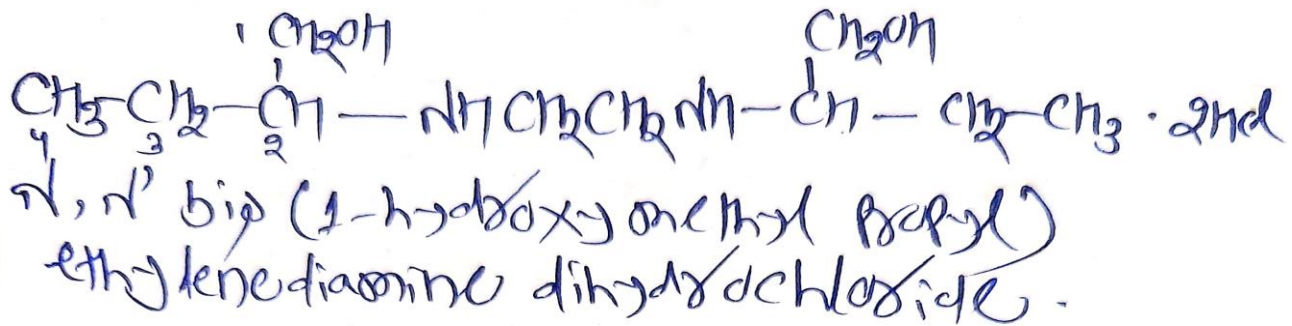 1 CH2OH CH2OH
CH3-CH2-CH-NHCH2CH2NH-CH-CH2-CH3 · 2HCl
4 3 2
N, N' bis (1-hydroxy methyl propyl)
ethylenediamine dihydrochloride.